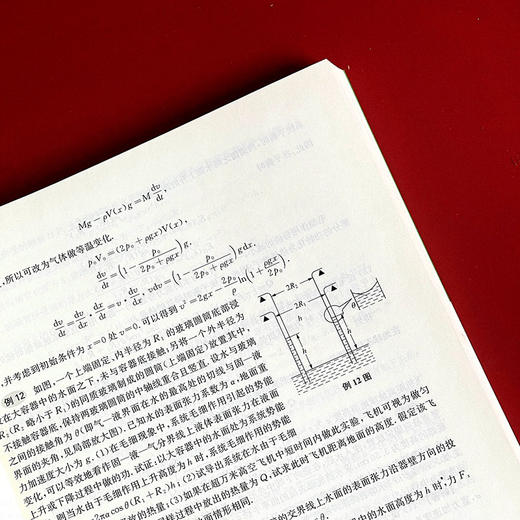 Mg − ρV(x)g = M dv/dt,
,所以可改为气体做等温变化.
p₀V₀ = (2p₀ + ρgx)V(x),
dv/dt = (1 − p₀/(2p₀ + ρgx)) g.
dv/dt = dv/dx · dx/dt = v · dv/dx, vdv = (1 − p₀/(2p₀ + ρgx)) gdx.
,并考虑到初始条件为 x=0 处 v=0. 可以得到 v² = 2gx − 2p₀/ρ ln(1 + ρgx/2p₀).
例 12 如图,一个上端固定,内半径为 R₁ 的玻璃圆筒底部浸
没在大容器中的水面之下,未与容器底接触,另将一个外半径为
R₂(R₂ 略小于 R₁)的同质玻璃制成的圆筒(上端固定)放置其中,
不接触容器底,保持两玻璃圆筒的中轴线重合且竖直.设水与玻璃
之间的接触角为 θ(即气—液界面在水的最高处的切线与固—液
界面的夹角,见局部放大图).已知水的表面张力系数为 α,地面重
力加速度大小为 g. (1)在毛细现象中,系统毛细作用引起的势能
变化,可以等效地看作固—液—气分界线上液体表面张力在液面
上升或下降过程中做的功.试证,以大容器中的水面处为系统势能
,则当水由于毛细作用上升高度为 h 时,系统毛细作用的势能
−2παcosθ(R₁+R₂)h; (2)试导出系统在水由于毛细
放的热量; (3)如果在超万米高空飞机中短时间内做此实验,飞机可视为做匀
过程中放出的热量为 Q,试求此时飞机距离地面的高度.假定该飞
地面情形相同.
的交界线上水面的表面张力沿器壁方向的投
中的水面高度为 h 时,力 F,
2R₂
2R₁
h
h
h
θ
例 12 图